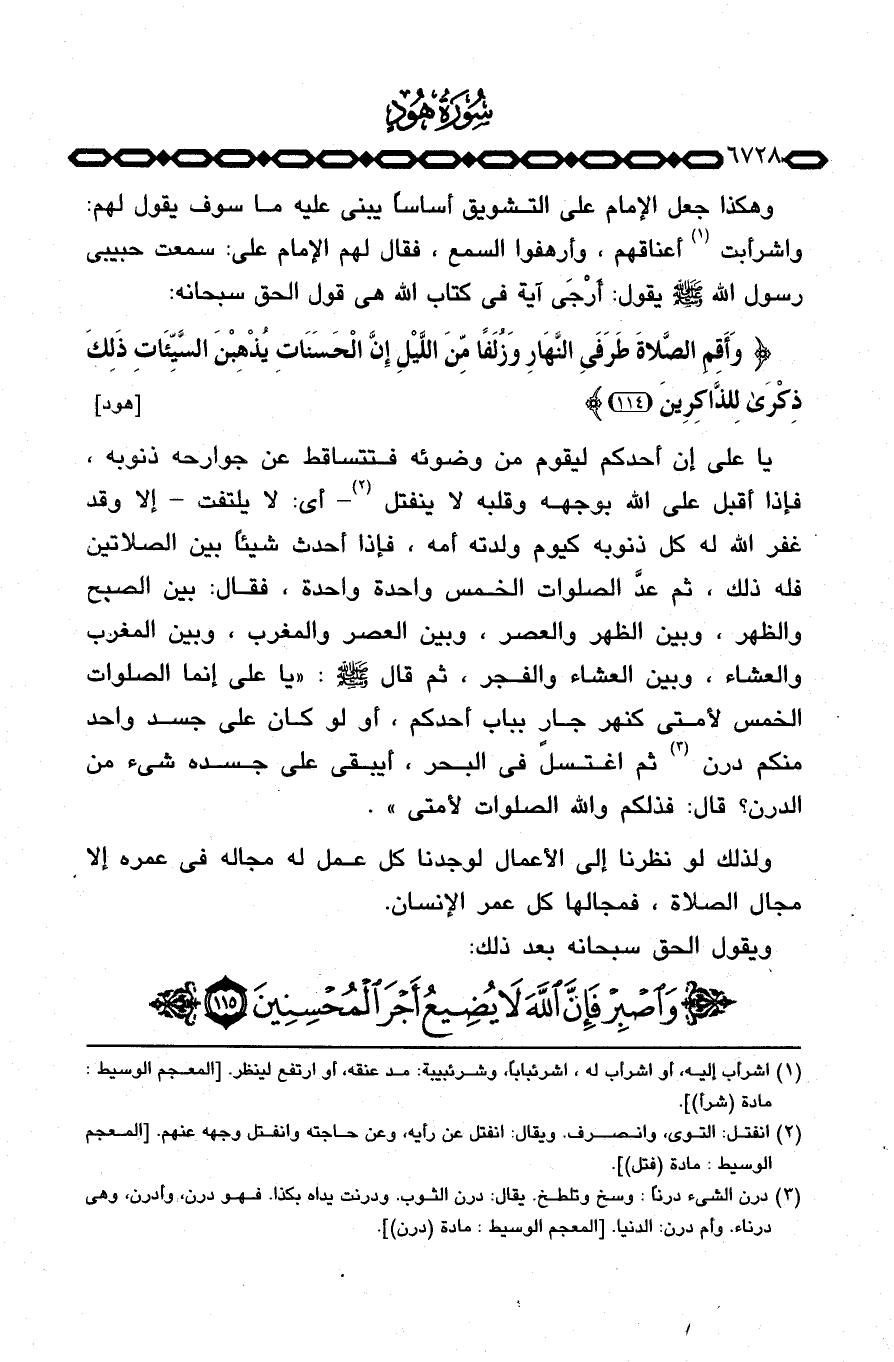 سُورَةُ هُودٍ
٦٧٢٨
وهكذا جعل الإمام على التشويق أساساً يبنى عليه ما سوف يقول لهم:
واشرأبت (١) أعناقهم ، وأرهفوا السمع ، فقال لهم الإمام على: سمعت حبيبى
رسول الله ﷺ يقول: أَرْجَى آية فى كتاب الله هى قول الحق سبحانه:
﴿ وَأَقِمِ الصَّلاةَ طَرَفَيِ النَّهَارِ وَزُلَفًا مِّنَ اللَّيْلِ إِنَّ الْحَسَنَاتِ يُذْهِبْنَ السَّيِّئَاتِ ذَلِكَ
ذِكْرَىٰ لِلذَّاكِرِينَ (١١٤) ﴾ [هود]
يا على إن أحدكم ليقوم من وضوئه فتتساقط عن جوارحه ذنوبه ،
فإذا أقبل على الله بوجهه وقلبه لا ينفتل (٢)– أى: لا يلتفت – إلا وقد
غفر الله له كل ذنوبه كيوم ولدته أمه ، فإذا أحدث شيئاً بين الصلاتين
فله ذلك ، ثم عدَّ الصلوات الخمس واحدة واحدة ، فقال: بين الصبح
والظهر ، وبين الظهر والعصر ، وبين العصر والمغرب ، وبين المغرب
والعشاء ، وبين العشاء والفجر ، ثم قال ﷺ : «يا على إنما الصلوات
الخمس لأمتى كنهر جارٍ بباب أحدكم ، أو لو كان على جسد واحد
منكم درن (٣) ثم اغتسل فى البحر ، أيبقى على جسده شىء من
الدرن؟ قال: فذلكم والله الصلوات لأمتى » .
ولذلك لو نظرنا إلى الأعمال لوجدنا كل عمل له مجاله فى عمره إلا
مجال الصلاة ، فمجالها كل عمر الإنسان.
ويقول الحق سبحانه بعد ذلك:
﴿ وَٱصْبِرْ فَإِنَّ ٱللَّهَ لَا يُضِيعُ أَجْرَ ٱلْمُحْسِنِينَ ١١٥ ﴾
(١) اشرأب إليه، أو اشرأب له ، اشرئباباً، وشرئبيبة: مد عنقه، أو ارتفع لينظر. [المعجم الوسيط :
مادة (شرأ)].
(٢) انفتل: التوى، وانصرف. ويقال: انفتل عن رأيه، وعن حاجته وانفتل وجهه عنهم. [المعجم
الوسيط : مادة (فتل)].
(٣) درن الشىء درناً : وسخ وتلطخ. يقال: درن الثوب. ودرنت يداه بكذا. فهو درن، وأدرن، وهى
درناء. وأم درن: الدنيا. [المعجم الوسيط : مادة (درن)].